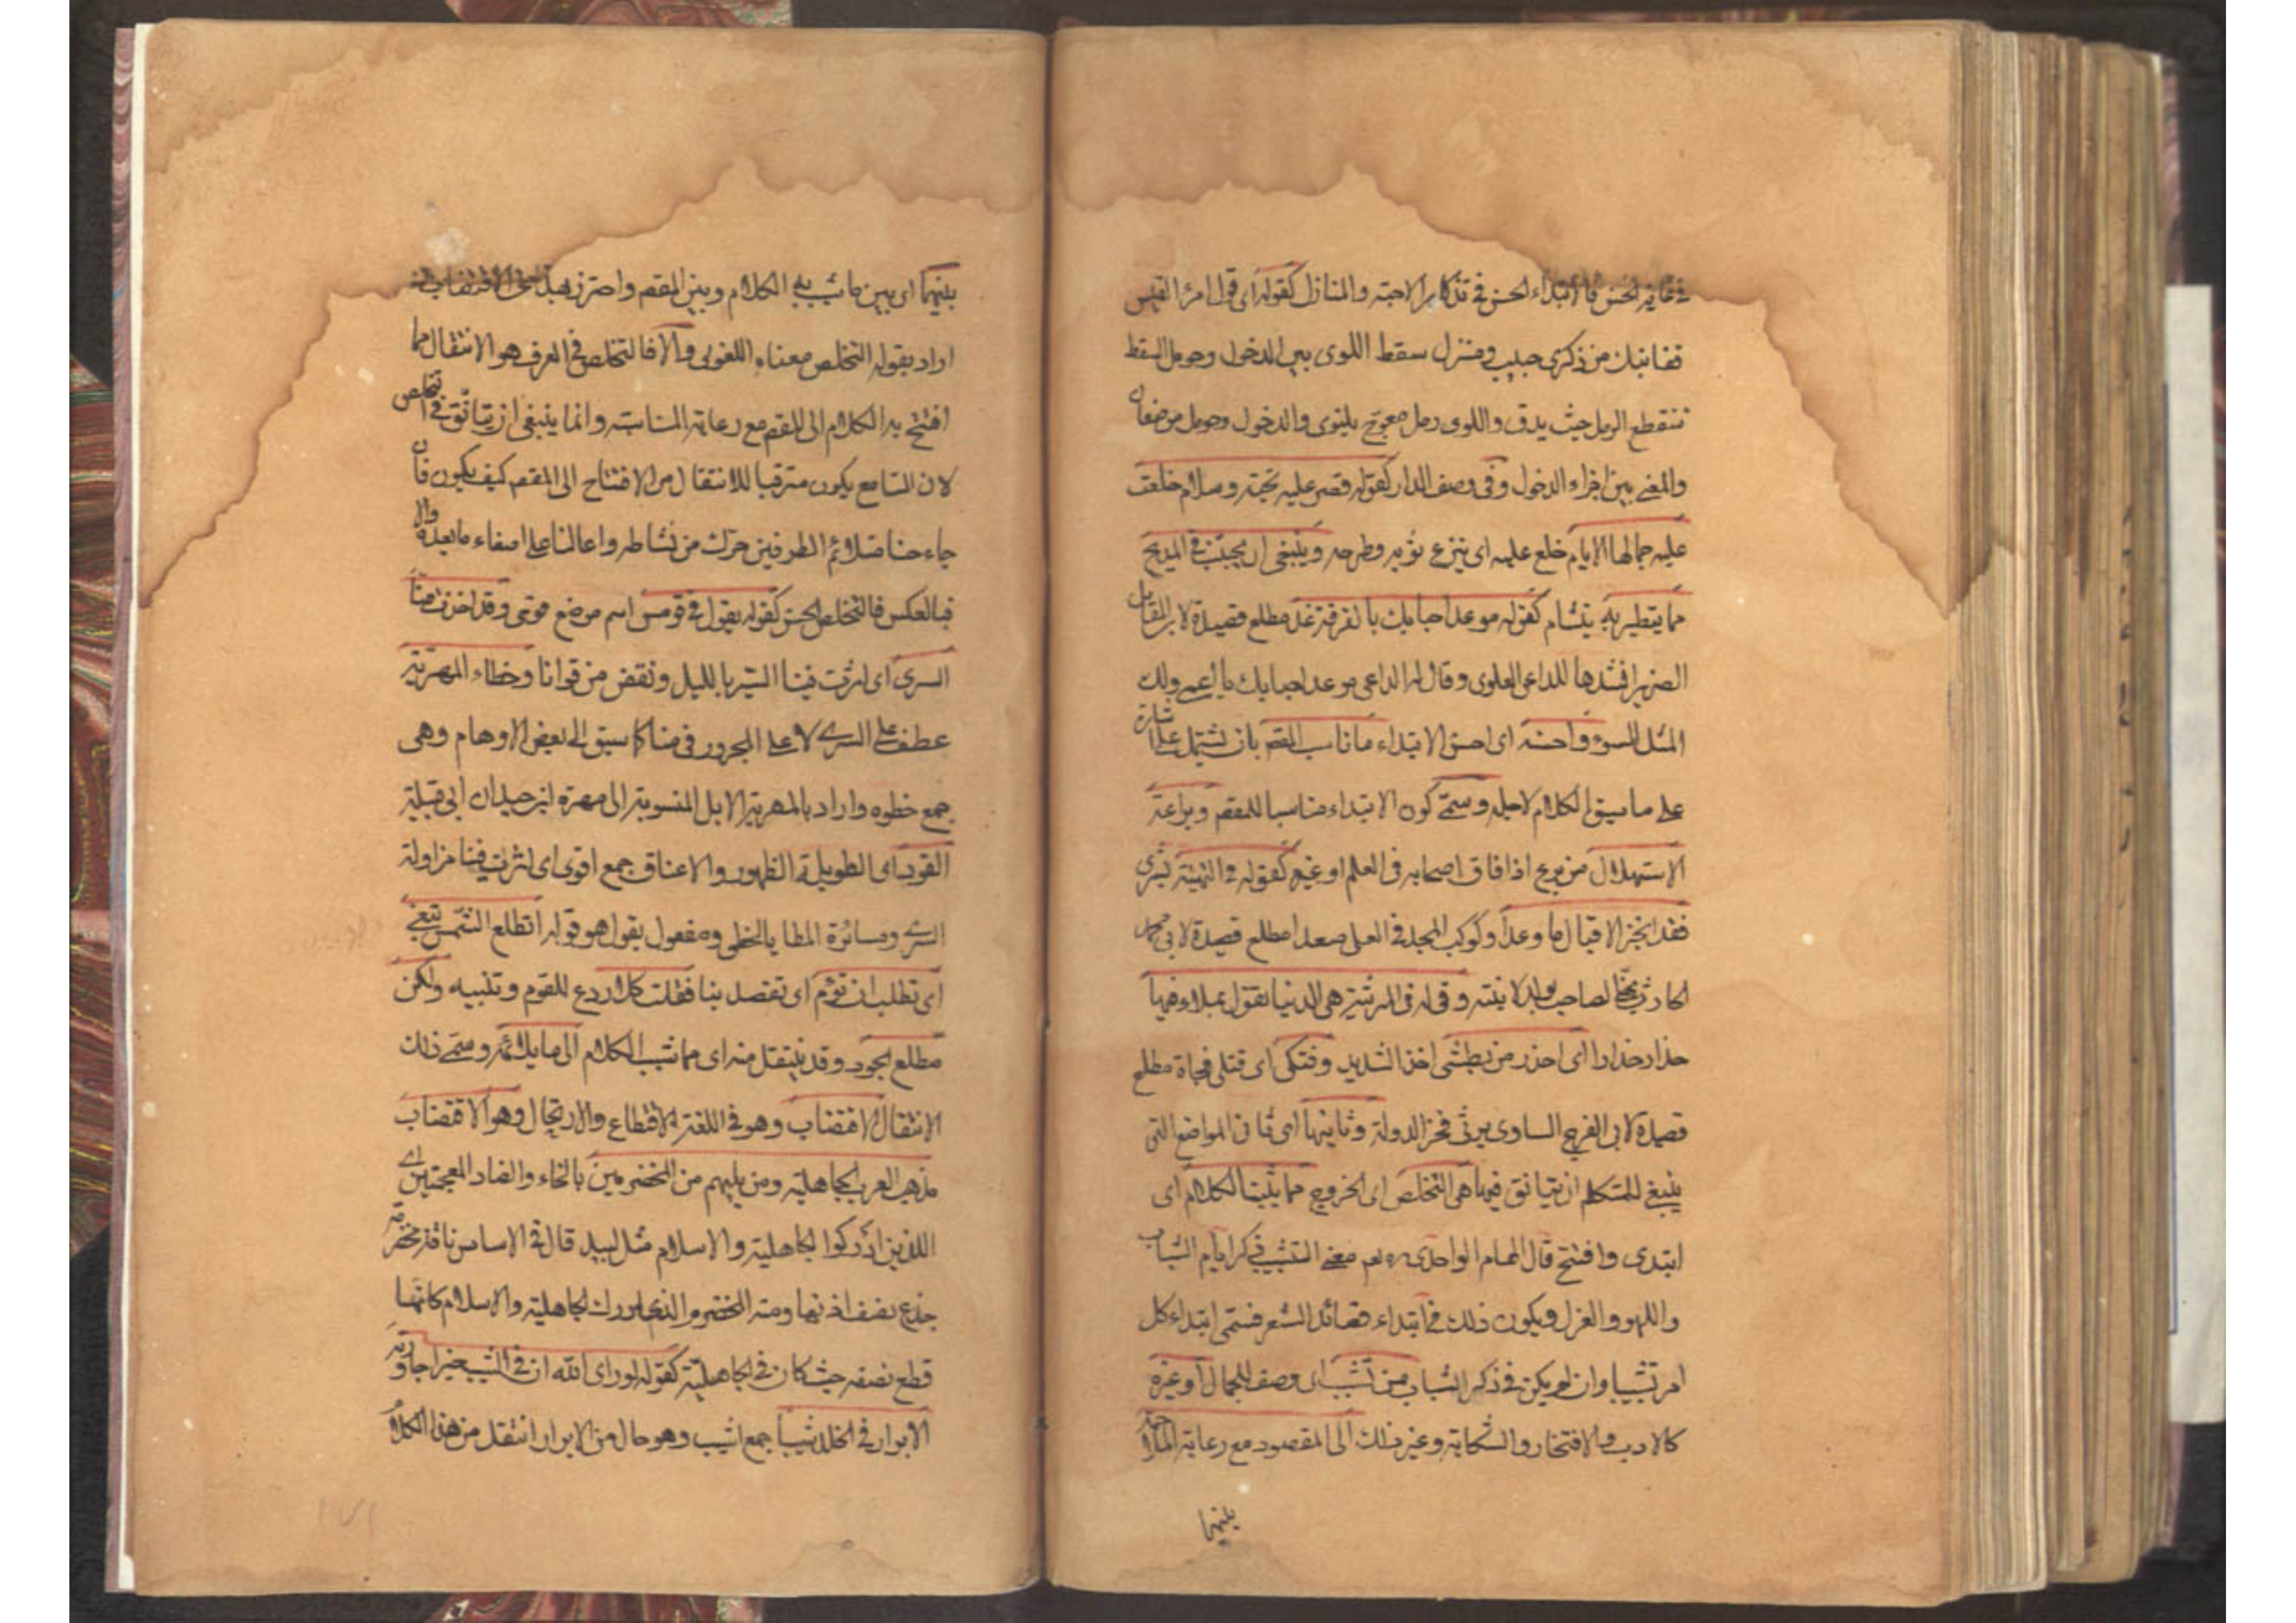 في غاية الحسن فالابتداء الحسن في تذكار الاحبة والمنازل كقوله اى قول امرئ القيس
قفا نبك من ذكرى حبيب ومنزل سقط اللوى بين الدخول وحومل السقط
منقطع الرمل حيث يدق واللوى رمل معوج يلتوى والدخول وحومل موضعان
والمعنى بين اجزاء الدخول وفى وصف الدار كقوله قصر عليه تحية وسلام خلعت
عليه جمالها الايام خلع عليه اى نزع ثوبه وطرحه وينبغى ان يجتنب فى المديح
مما يتطير به يتشام كقوله موعد احبابك بالفرقة غد مطلع قصيدة لابن المقاتل
الضرير انشدها للداعى العلوى وقال له الداعى موعد احبابك يا اعمى ولك
المثل السوء واحسنه اى احسن الابتداء ما ناسب المقص بان يشتمل على اشارة
على ما سيق الكلام لاجله وسمى كون الابتداء مناسبا للمقصم وبراعة
الاستهلال من برع اذا فاق اصحابه فى العلم او غيره كقوله فى التهنية بشرى
فقد انجز الاقبال ما وعدا وكوكب المجد فى افق العلى صعدا مطلع قصيدة لابى محمد
الخازن يهنى الصاحب بولد لابنته وقوله فى المرثية هى الدنيا تقول بملاء فيها
حذار حذار اى احذر من بطشى اخذ الشديد وفتكى اى قتلى فجاة مطلع
قصيدة لابى الفرج الساوى يرثى فخر الدولة وثانيها اى ثانى المواضع التى
ينبغى للمتكلم ان يتانق فيها هى التخلص اى الخروج مما يشبب الكلام اى
ابتدى وافتتح قال الامام الواحدى رحه معنى التشبيب ذكر ايام الشباب
واللهو والغزل ويكون ذلك فى ابتداء قصائد الشعر فسمى ابتداء كل
امر تشبيبا وان لم يكن فى ذكر الشباب من تشبيب اى وصف للجمال او غيره
كالادب والافتخار والشكاية وغير ذلك الى المقصود مع رعاية الملاءمة
بينهما
بينهما اى بين ما شبب به الكلام وبين المقصم واحترز بهذا عن الاقتضاب
اراد بقوله التخلص معناه اللغوى والا فالتخلص فى العرف هو الانتقال مما
افتتح به الكلام الى المقصم مع رعاية المناسبة وانما ينبغى ان يتانق فى التخلص
لان السامع يكون مترقبا للانتقال من الافتتاح الى المقصم كيف يكون فان
جاء حسنا متلائم الطرفين حرك من نشاطه واعان على اصغاء ما بعده والا
فبالعكس فالتخلص الحسن كقوله يقول فى قومس اسم موضع قومى وقد اخذت منا
السرى اى اثرت فينا السير بالليل ونقض من قوانا وخطاء المهرية
عطف على السرى لا على المجرور فى منا كما سبق الى بعض الاوهام وهى
جمع خطوه واراد بالمهرية الابل المنسوبة الى مهرة ابن حيدان ابى قبيلة
القود اى الطويلة الظهور والاعناق جمع اقوى اى اثرت فينا مزاولة
السرى ومسائرة المطايا بالخطى ومفعول يقول هو قوله اتطلع الشمس تبغى
اى تطلب ان تؤم اى تقصد بنا فقلت كلا ردع للقوم وتنبيه ولكن
مطلع الجود وقد ينتقل منه اى مما شبب الكلام الى ما يلائمه وسمى ذلك
الانتقال الاقتضاب وهو فى اللغة الاقتطاع والارتجال وهو الاقتضاب
مذهب العرب الجاهلية ومن يليهم من المخضرمين بالخاء والضاد المعجمتين اى
الذين ادركوا الجاهلية والاسلام مثل لبيد قال فى الاساس ناقة مخضرمة
جذع نصف اذنها ومنه المخضرم الذى ادرك الجاهلية والاسلام كانما
قطع نصفه حيث كان فى الجاهلية كقوله لو راى الله ان فى الشيب خيرا جاورته
الابرار فى الخلد شيبا جمع اشيب وهو حال من الابرار انتقل من هذا الكلام